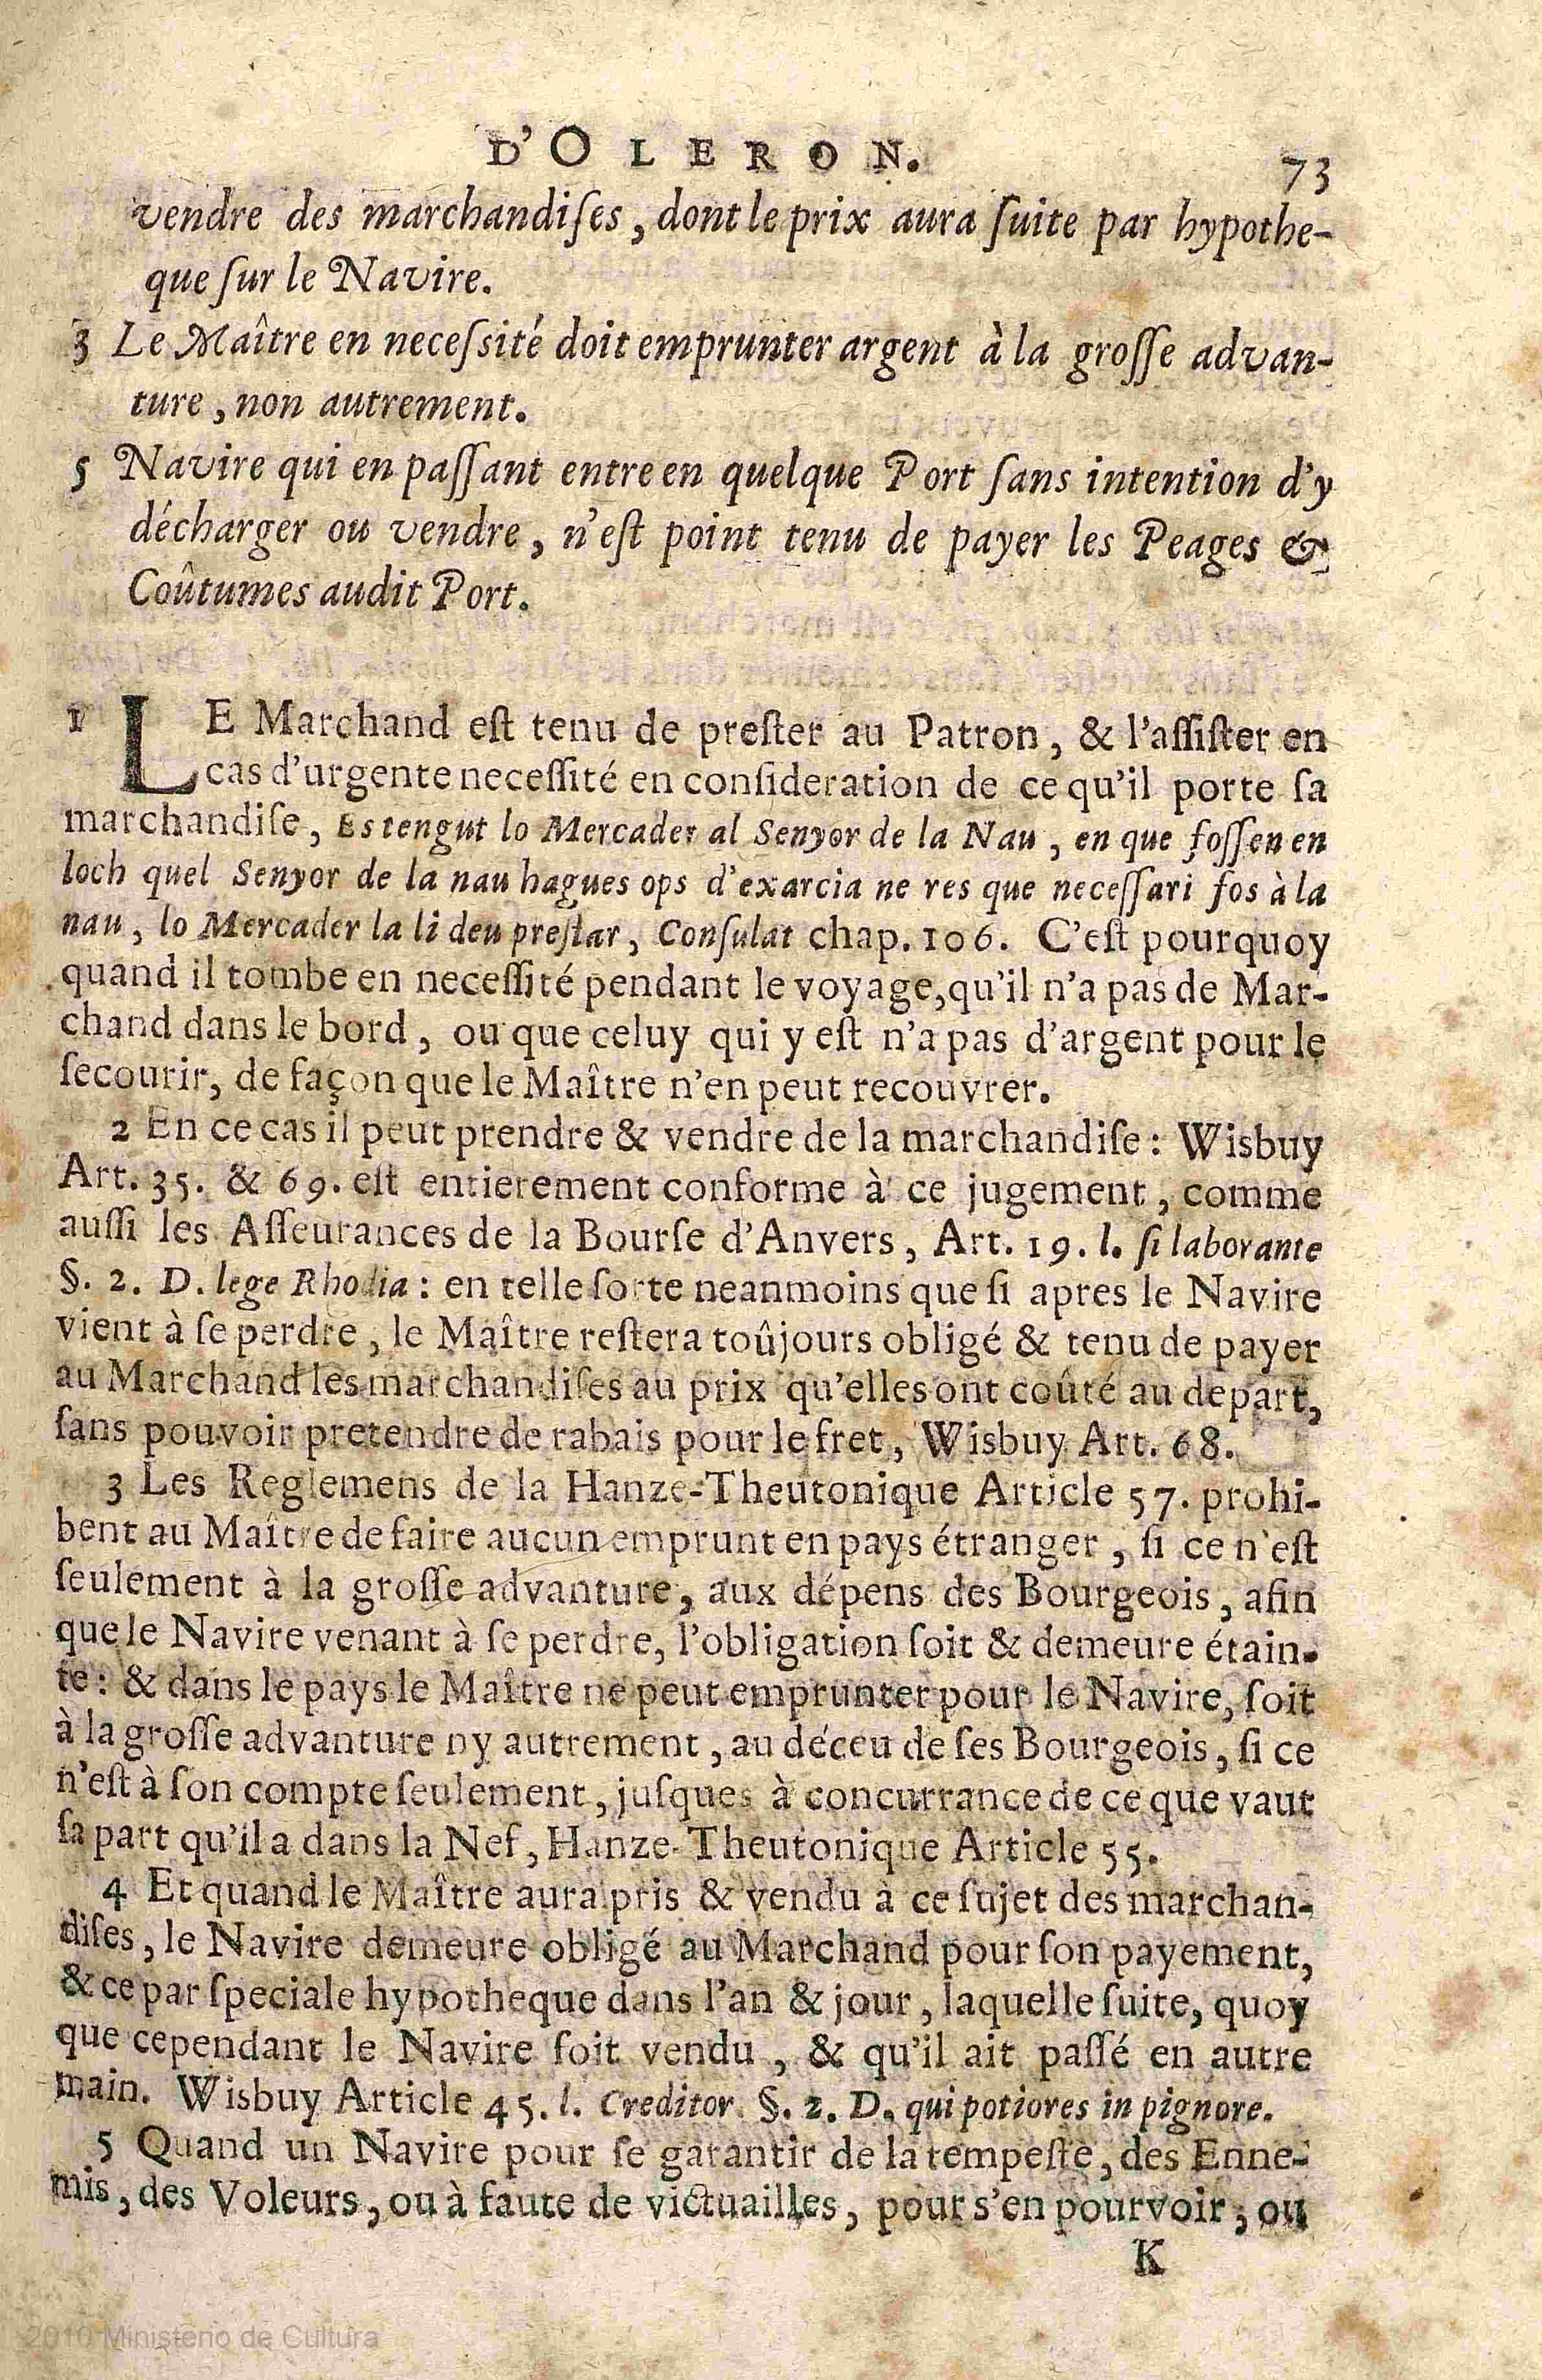 D'OLERON. 73
vendre des marchandiſes, dont le prix aura ſuite par hypothe-
que ſur le Navire.
3 Le Maître en neceſsité doit emprunter argent à la groſſe advan-
ture, non autrement.
5 Navire qui en paſſant entre en quelque Port ſans intention d'y
décharger ou vendre, n'eſt point tenu de payer les Peages &
Coûtumes audit Port.
1 LE Marchand eſt tenu de preſter au Patron, & l'aſſiſter en
cas d'urgente neceſſité en conſideration de ce qu'il porte ſa
marchandiſe, Es tengut lo Mercader al Senyor de la Nau, en que foſſen en
loch quel Senyor de la nau hagues ops d'exarcia ne res que neceſſari fos à la
nau, lo Mercader la li deu preſtar, Conſulat chap. 106. C'eſt pourquoy
quand il tombe en neceſſité pendant le voyage, qu'il n'a pas de Mar-
chand dans le bord, ou que celuy qui y eſt n'a pas d'argent pour le
ſecourir, de façon que le Maître n'en peut recouvrer.
2 En ce cas il peut prendre & vendre de la marchandiſe: Wisbuy
Art. 35. & 69. eſt entierement conforme à ce jugement, comme
auſſi les Aſſeurances de la Bourſe d'Anvers, Art. 19. l. ſi laborante
§. 2. D. lege Rhodia: en telle ſorte neanmoins que ſi apres le Navire
vient à ſe perdre, le Maître reſtera toûjours obligé & tenu de payer
au Marchand les marchandiſes au prix qu'elles ont coûté au depart,
ſans pouvoir pretendre de rabais pour le fret, Wisbuy Art. 68.
3 Les Reglemens de la Hanze-Theutonique Article 57. prohi-
bent au Maître de faire aucun emprunt en pays étranger, ſi ce n'eſt
ſeulement à la groſſe advanture, aux dépens des Bourgeois, afin
que le Navire venant à ſe perdre, l'obligation ſoit & demeure étain-
te: & dans le pays le Maître ne peut emprunter pour le Navire, ſoit
à la groſſe advanture ny autrement, au déceu de ſes Bourgeois, ſi ce
n'eſt à ſon compte ſeulement, juſques à concurrance de ce que vaut
ſa part qu'il a dans la Nef, Hanze-Theutonique Article 55.
4 Et quand le Maître aura pris & vendu à ce ſujet des marchan-
diſes, le Navire demeure obligé au Marchand pour ſon payement,
& ce par ſpeciale hypotheque dans l'an & jour, laquelle ſuite, quoy
que cependant le Navire ſoit vendu, & qu'il ait paſſé en autre
main. Wisbuy Article 45. l. Creditor. §. 2. D. qui potiores in pignore.
5 Quand un Navire pour ſe garantir de la tempeſte, des Enne-
mis, des Voleurs, ou à faute de victuailles, pour s'en pourvoir, ou
K
2010 Ministerio de Cultura